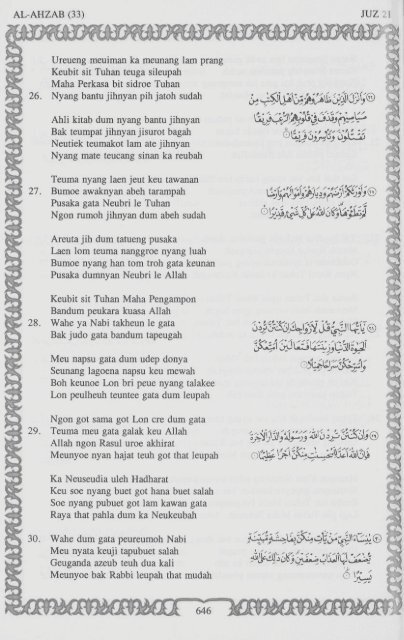 AL-AHZAB (33) JUZ 21
Ureueng meuiman ka meunang lam prang
Keubit sit Tuhan teuga sileupah
Maha Perkasa bit sidroe Tuhan
26. Nyang bantu jihnyan pih jatoh sudah
وَأَنْزَلَ الَّذِينَ ظَاهَرُوهُمْ مِنْ أَهْلِ الْكِتَٰبِ مِنْ
صَيَاصِيهِمْ وَقَذَفَ فِي قُلُوبِهِمُ الرُّعْبَ فَرِيقًا
تَقْتُلُونَ وَتَأْسِرُونَ فَرِيقًا
Ahli kitab dum nyang bantu jihnyan
Bak teumpat jihnyan jisurot bagah
Neutiek teumakot lam ate jihnyan
Nyang mate teucang sinan ka reubah
Teuma nyang laen jeut keu tawanan
27. Bumoe awaknyan abeh tarampah
Pusaka gata Neubri le Tuhan
Ngon rumoh jihnyan dum abeh sudah
وَأَوْرَثَكُمْ أَرْضَهُمْ وَدِيَارَهُمْ وَأَمْوَالَهُمْ وَأَرْضًا
لَمْ تَطَئُوهَا وَكَانَ اللَّهُ عَلَىٰ كُلِّ شَيْءٍ قَدِيرًا
Areuta jih dum tatueng pusaka
Laen lom teuma nanggroe nyang luah
Bumoe nyang han tom troh gata keunan
Pusaka dumnyan Neubri le Allah
Keubit sit Tuhan Maha Pengampon
Bandum peukara kuasa Allah
28. Wahe ya Nabi takheun le gata
Bak judo gata bandum tapeugah
يَٰأَيُّهَا النَّبِيُّ قُلْ لِأَزْوَاجِكَ إِنْ كُنْتُنَّ تُرِدْنَ
الْحَيَوٰةَ الدُّنْيَا وَزِينَتَهَا فَتَعَالَيْنَ أُمَتِّعْكُنَّ
وَأُسَرِّحْكُنَّ سَرَاحًا جَمِيلًا
Meu napsu gata dum udep donya
Seunang lagoena napsu keu mewah
Boh keunoe Lon bri peue nyang talakee
Lon peulheuh teuntee gata dum leupah
Ngon got sama got Lon cre dum gata
29. Teuma meu gata galak keu Allah
Allah ngon Rasul uroe akhirat
Meunyoe nyan hajat teuh got that leupah
وَإِنْ كُنْتُنَّ تُرِدْنَ اللَّهَ وَرَسُولَهُ وَالدَّارَ الْآخِرَةَ
فَإِنَّ اللَّهَ أَعَدَّ لِلْمُحْسِنَٰتِ مِنْكُنَّ أَجْرًا عَظِيمًا
Ka Neuseudia uleh Hadharat
Keu soe nyang buet got hana buet salah
Soe nyang pubuet got lam kawan gata
Raya that pahla dum ka Neukeubah
30. Wahe dum gata peureumoh Nabi
Meu nyata keuji tapubuet salah
Geuganda azeub teuh dua kali
Meunyoe bak Rabbi leupah that mudah
يَٰنِسَاءَ النَّبِيِّ مَنْ يَأْتِ مِنْكُنَّ بِفَاحِشَةٍ مُبَيِّنَةٍ
يُضَٰعَفْ لَهَا الْعَذَابُ ضِعْفَيْنِ وَكَانَ ذَٰلِكَ عَلَى اللَّهِ
يَسِيرًا
646